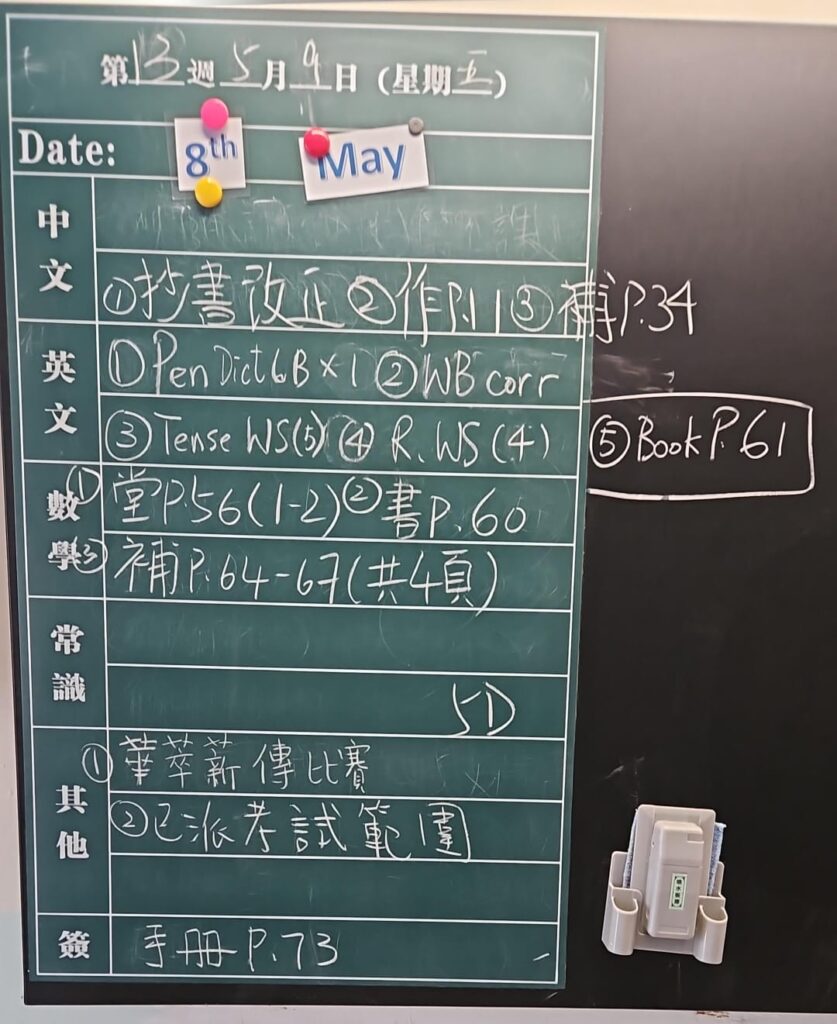 第13週5月9日(星期五)
Date: 8th May
中文
①抄書改正②作P.11③補P.34
英文
①Pen Dict6B×1②WB corr
③Tense WS(5)④R.WS(4)⑤Book P.61
數學
①堂P.56(1-2)②書P.60
③補P.64-67(共4頁)
常識
5D
其他
①華萃薪傳比賽
②已派考試範圍
簽
手冊P.73